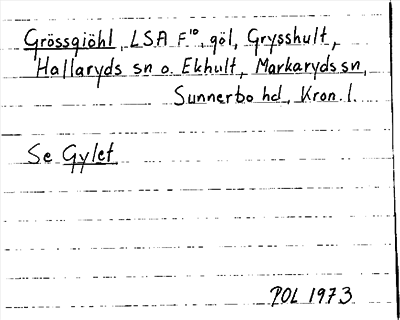 Grössgiöhl, LSA F¹⁰, göl, Grysshult,
Hallaryds sn o. Ekhult, Markaryds sn,
Sunnerbo hd, Kron. l.
Se Gylet
POL 1973